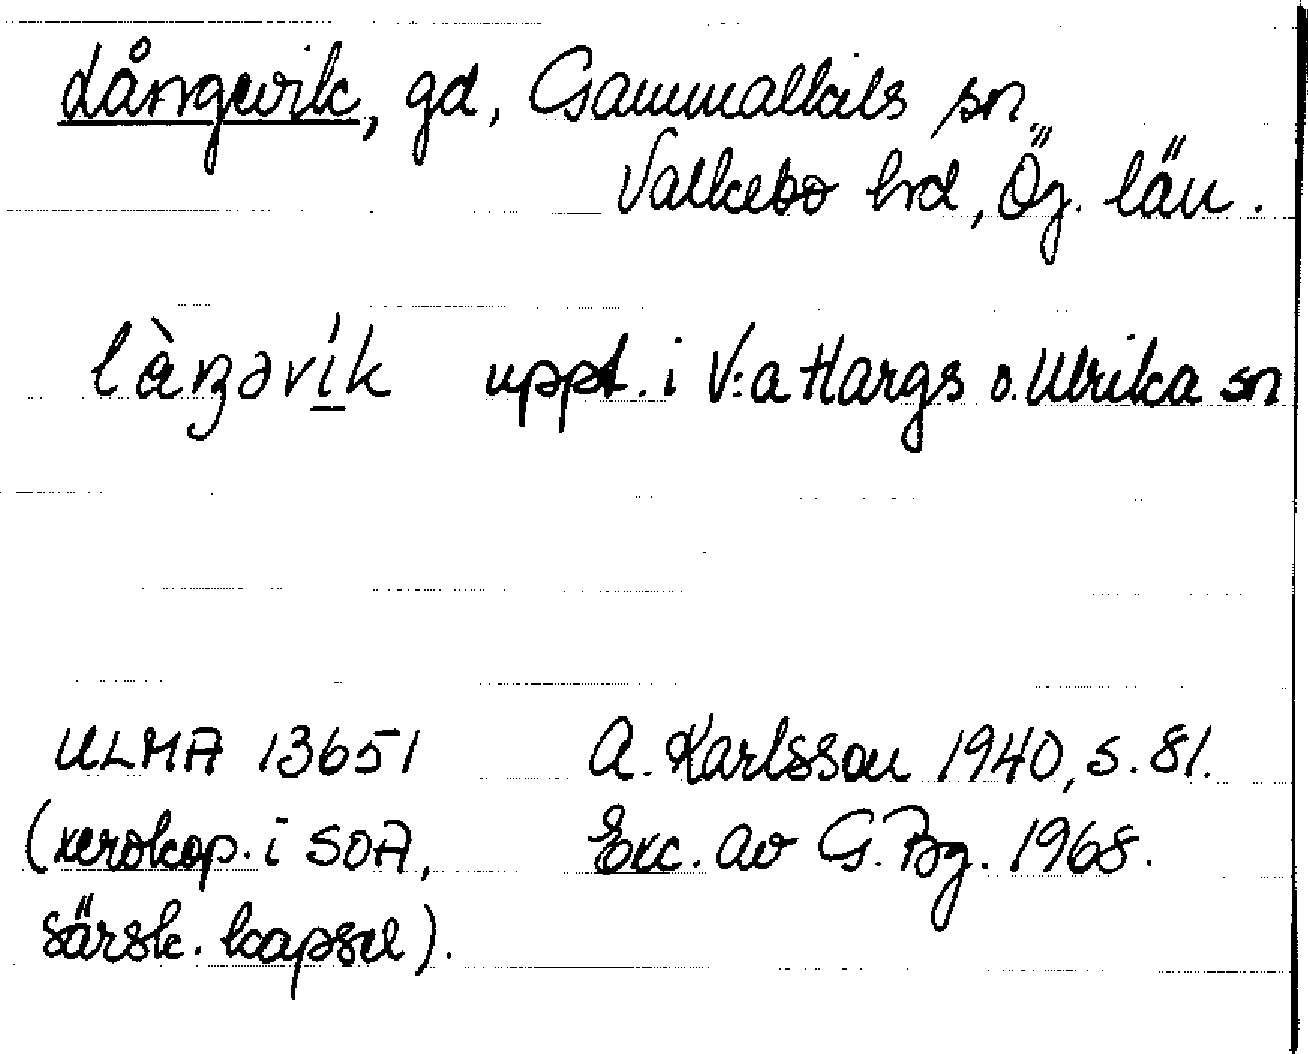 Långevik, gd, Gammalkils sn,
Valkebo hd, Ög. län.
làŋəvík uppt. i V:a Hargs o. Ulrika sn
ULMA 13651 A. Karlsson 1940, s. 81.
(xerokop. i SOA, Exc. av G. Bg. 1968.
särsk. kapsel).